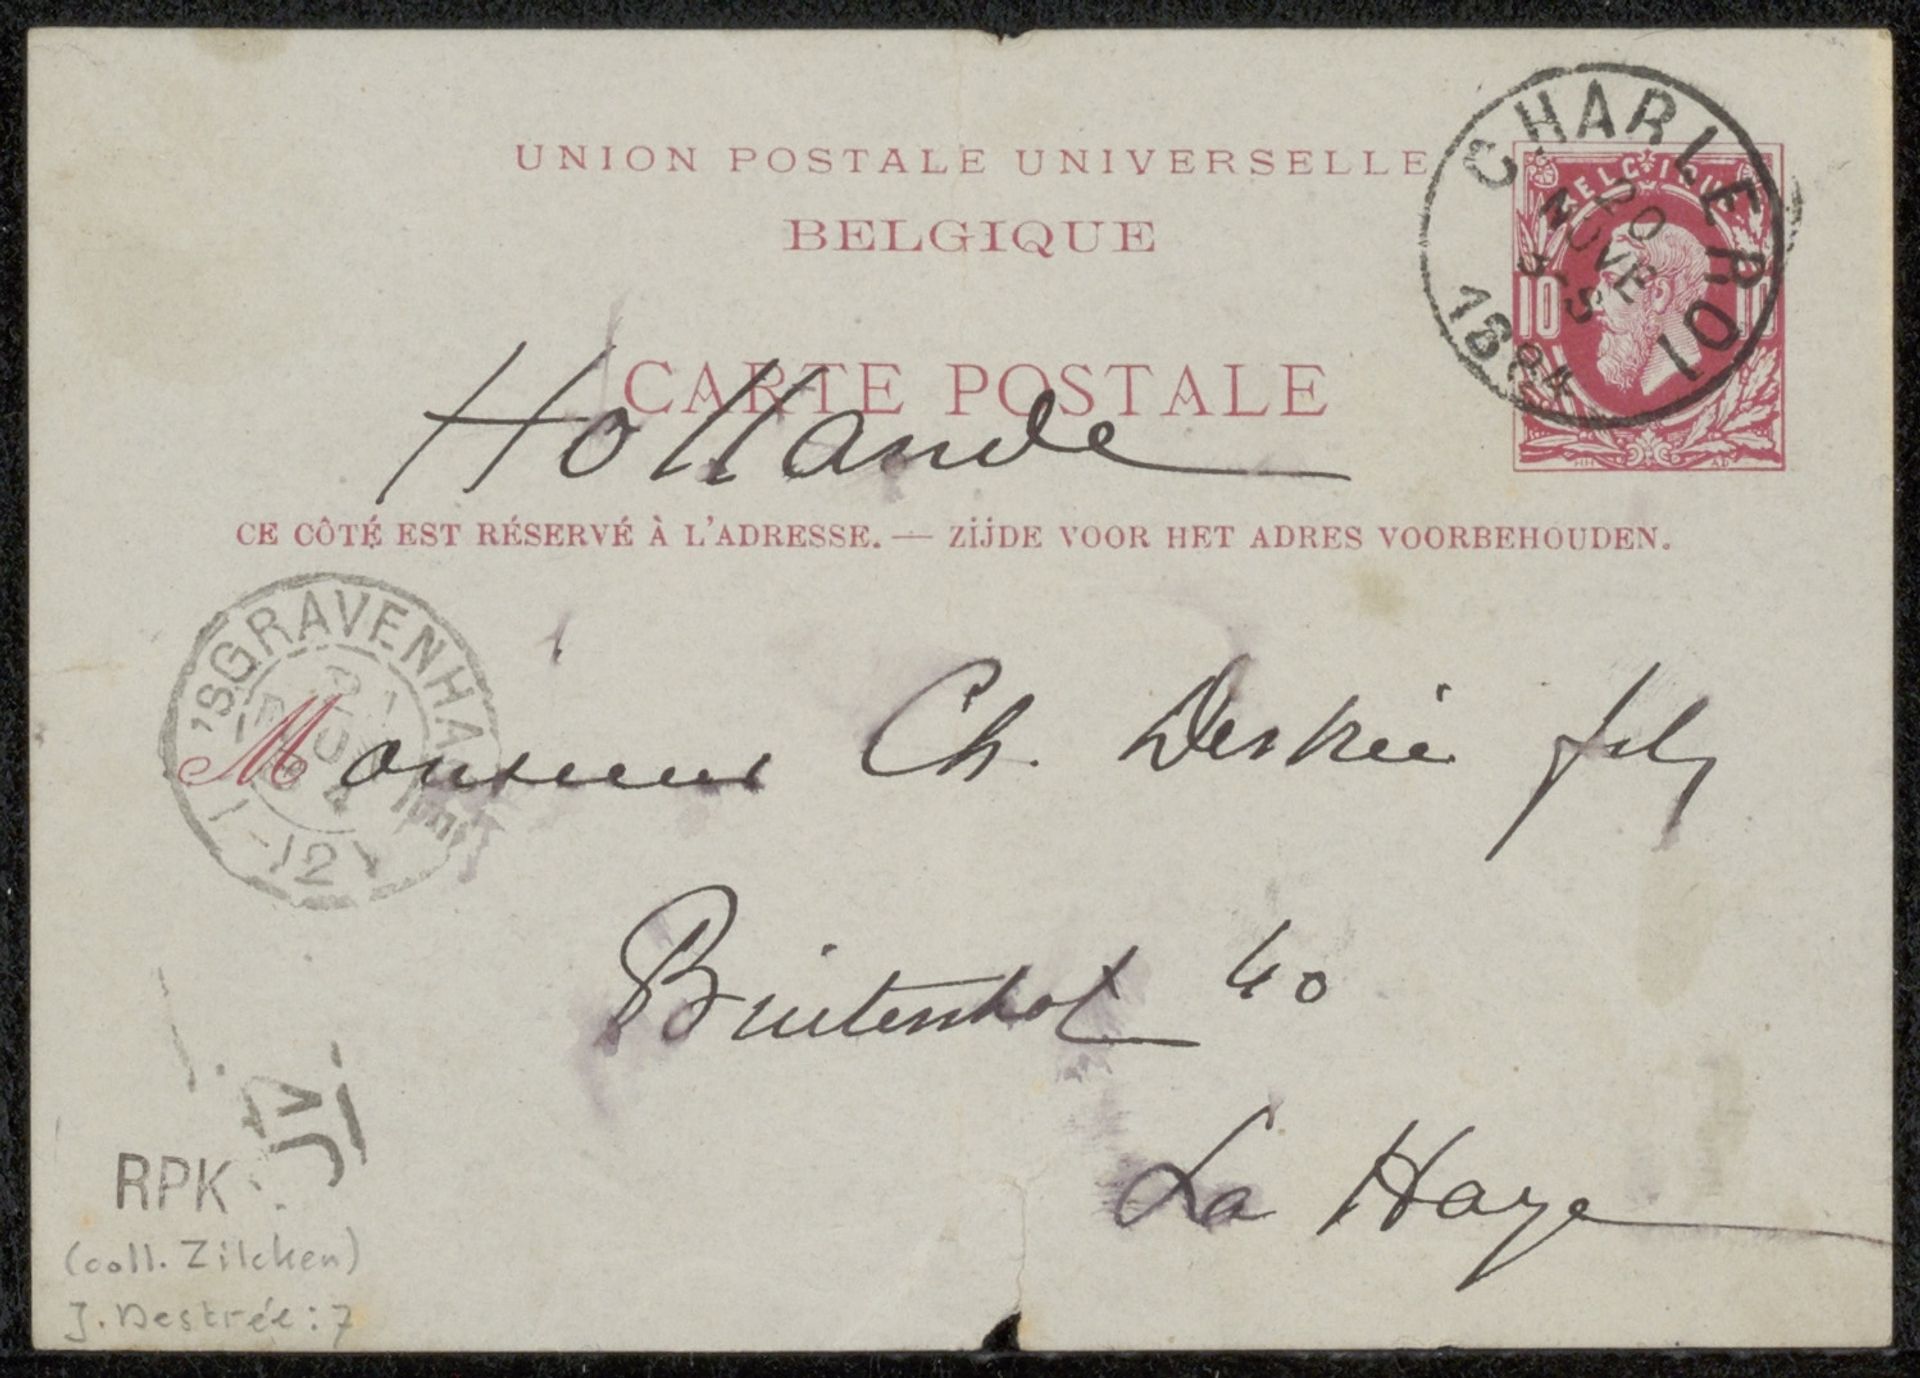 UNION POSTALE UNIVERSELLE
BELGIQUE
CARTE POSTALE
Hollande
CE CÔTÉ EST RÉSERVÉ À L'ADRESSE. — ZIJDE VOOR HET ADRES VOORBEHOUDEN.
CHARLEROI
NOVE
1884
BELGIQUE
10
'SGRAVENHA
Monsieur Ch. Destrée fils
Buitenhof 40
La Haye
RPK
(coll. Zilcken)
J. Destrée: 7